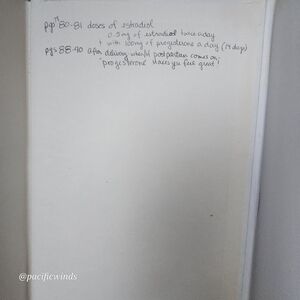 pg's 80-81 doses of estradiol
0.5mg of estradiol twice a day
+ with 100mg of progesterone a day (14 days)
pgs 88-90 after delivery when/if postpartum comes on,
"progesterone makes you feel great!"
@pacificwinds